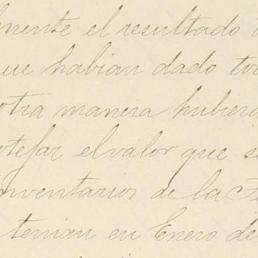 mente el resultado
que habian dado
otra manera hubiera
otejar el valor que s
inventarios de la
tenian en Enero de